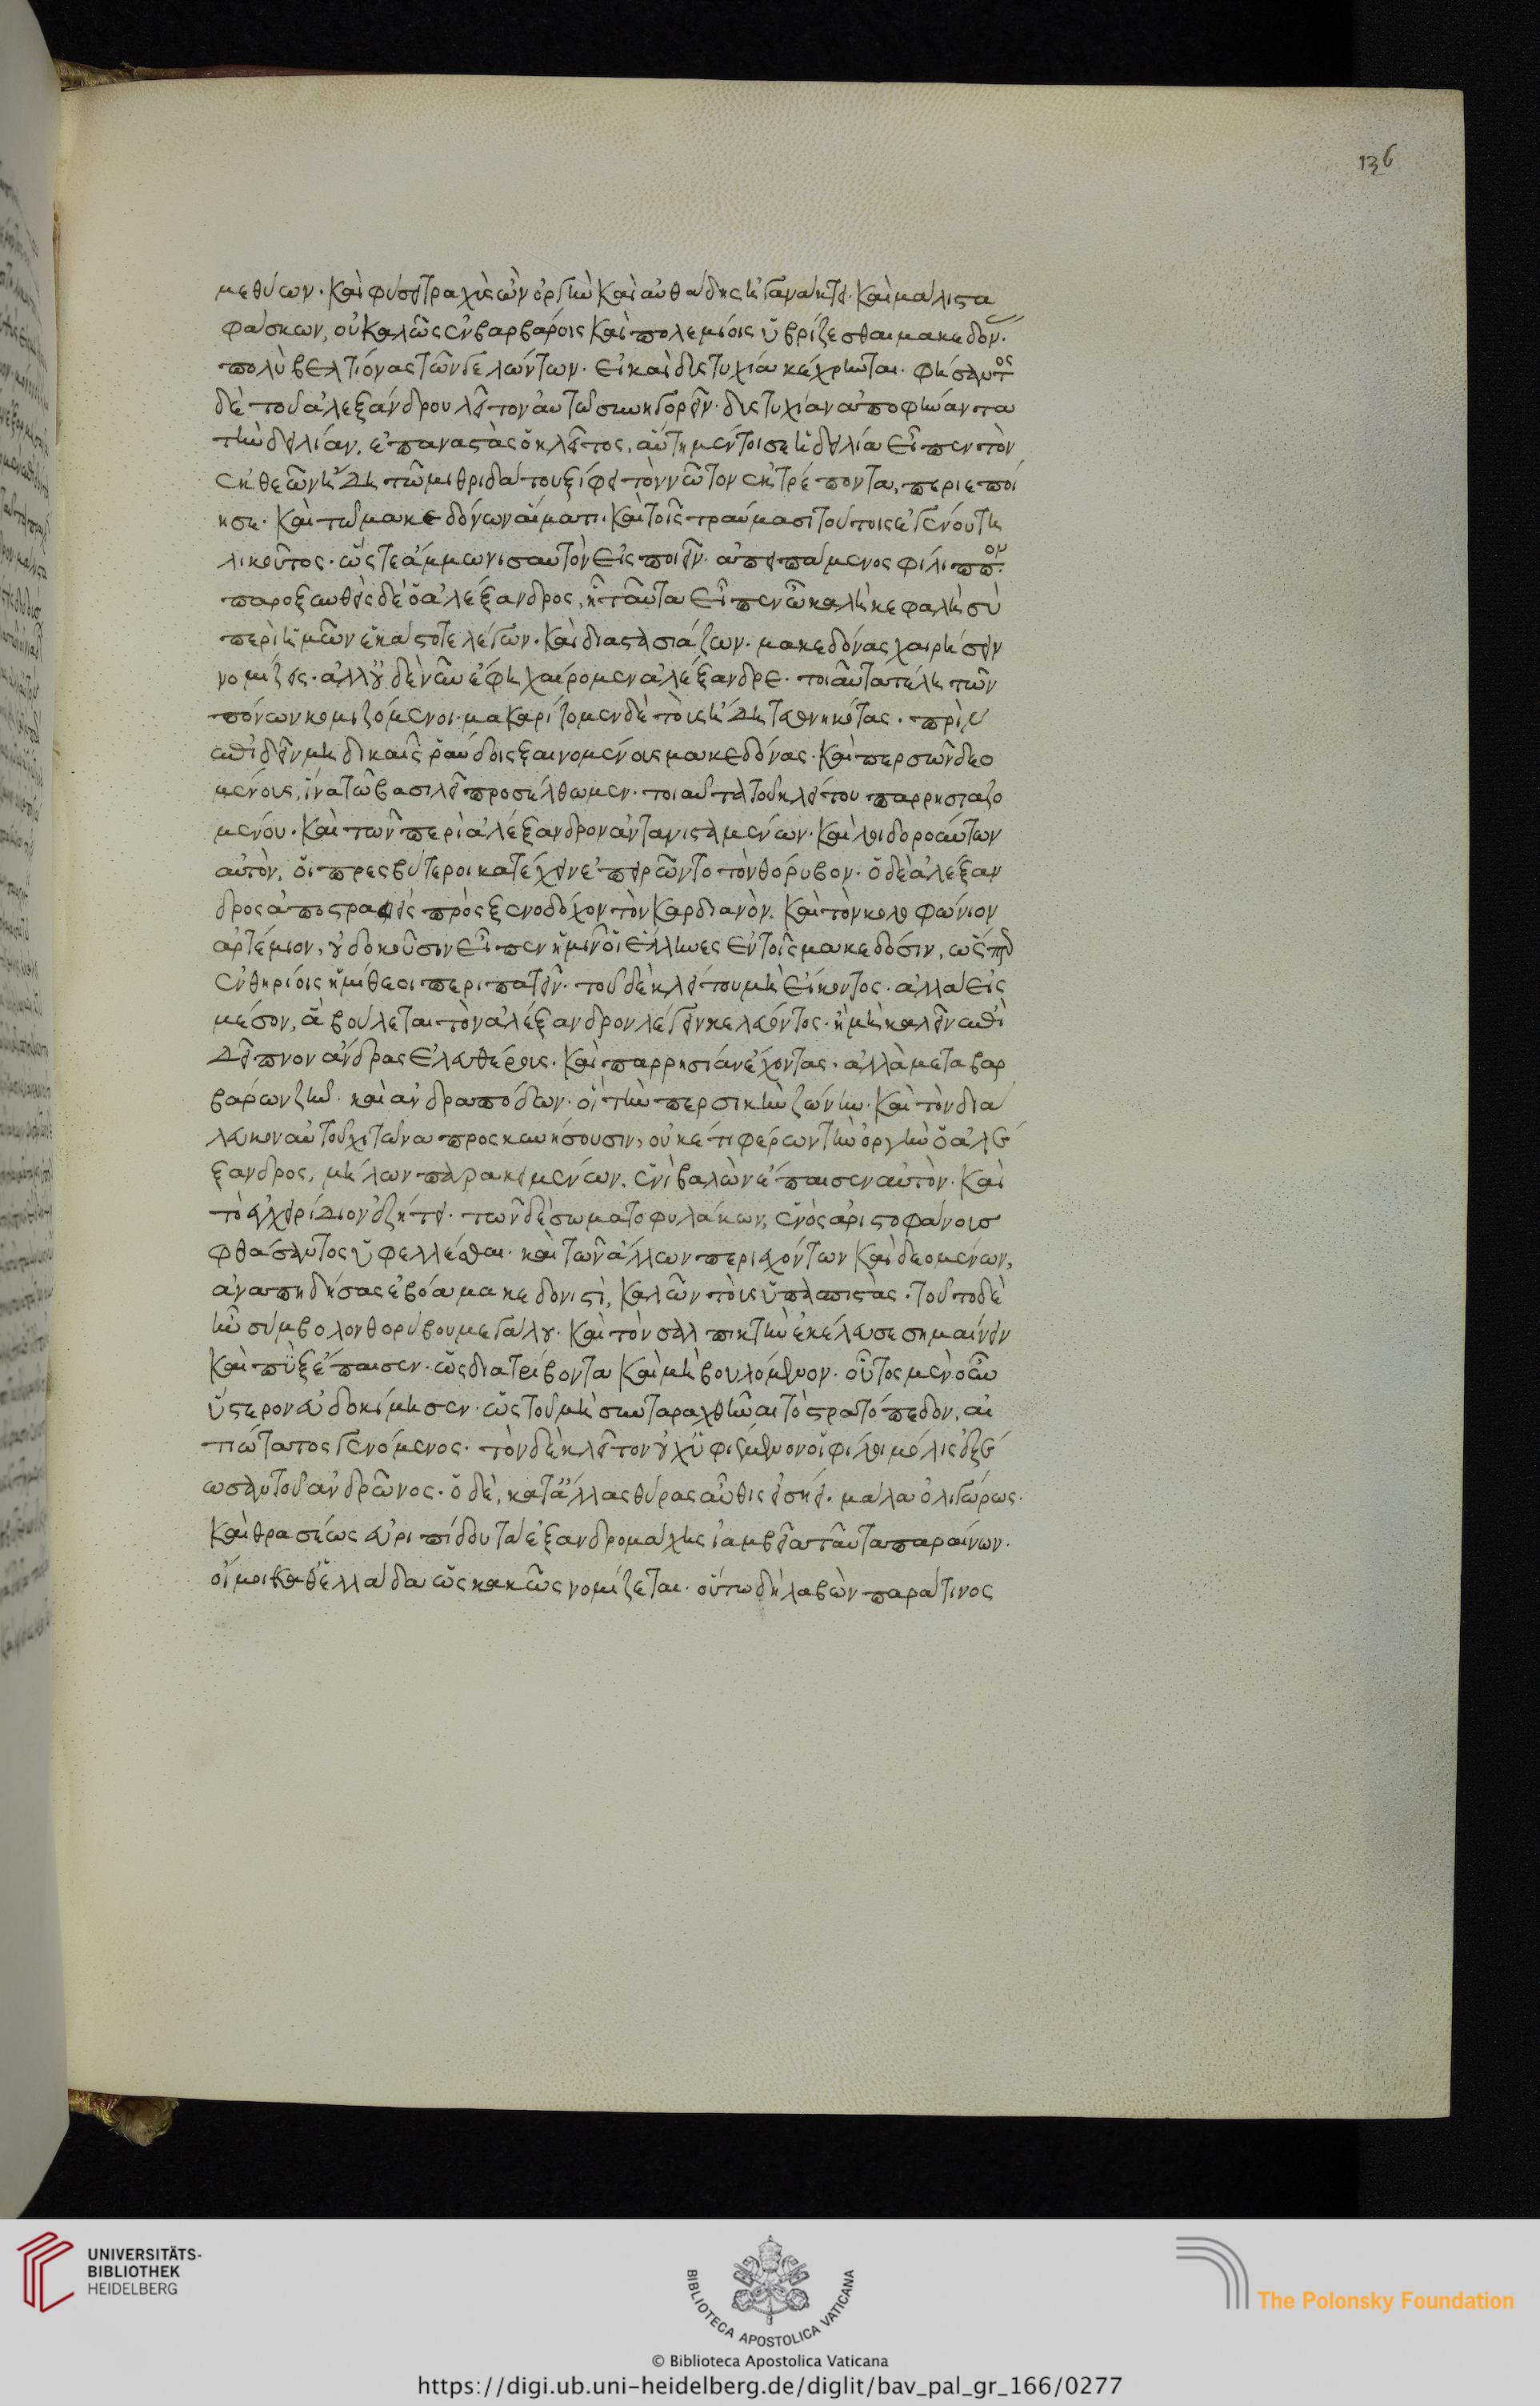 136
μεθύων· καὶ φύσει τραχὺς ὢν ὀργὴν καὶ αὐθάδης ἠγανάκτει· καὶ μάλιστα
φάσκων, οὐ καλῶς ἐν βαρβάροις καὶ πολεμίοις ὑβρίζεσθαι μακεδόν·
πολὺ βελτίονας τῶν γελώντων· εἰ καὶ δυστυχία κέχρηνται· φήσαντος
δὲ τοῦ ἀλεξάνδρου κλεῖτον αὑτῷ συνηγορεῖν· δυστυχίαν ἀποφαίνοντα
τὴν δειλίαν, ἐπαναστὰς ὁ κλεῖτος, αὕτη μέντοι σε ἡ δειλία εἶπεν τὸν
ἐκ θεῶν ἤδη τῶ μιθριδάτου ξίφει τὸν νῶτον ἐκτρέποντα, περιεποί
ησε· καὶ τῷ μακεδόνων αἵματι· καὶ τοῖς τραύμασι τούτοις ἐγένου τη
λικοῦτος· ὥστε ἄμμωνι σαυτὸν εἰσποιεῖν· ἀπειπάμενος φίλιππον·
παροξυνθεὶς δὲ ὁ ἀλέξανδρος, ἦ ταῦτα εἶπεν ὦ κακὴ κεφαλὴ σὺ
περὶ ἡμῶν ἑκάστοτε λέγων· καὶ διαστασιάζων· μακεδόνας χαιρήσειν
νομίζεις· ἀλλ' οὐδὲ νῦν ἔφη χαίρομεν ἀλέξανδρε· τοιαῦτα τέλη τῶν
πόνων κομιζόμενοι· μακαρίζομεν δὲ τοὺς ἤδη τεθνηκότας· πρὶν
ἐπιδεῖν μηδικαῖς ῥάβδοις ξαινομένους μακεδόνας· καὶ περσῶν δεο
μένους, ἵνα τῶ βασιλεῖ προσέλθωμεν· τοιαῦτα τοῦ κλείτου παρρησιαζο
μένου· καὶ τῶν περὶ ἀλέξανδρον ἀντανισταμένων· καὶ λοιδορούντων
αὐτὸν, οἱ πρεσβύτεροι κατέχειν ἐπειρῶντο τὸν θόρυβον· ὁ δὲ ἀλέξαν
δρος ἀποστραφεὶς πρὸς ξενοδόχον τὸν καρδιανὸν· καὶ τὸν κολοφώνιον
ἀρτέμιον, οὐ δοκοῦσιν εἶπεν ἡμῖν οἱ ἕλληνες ἐν τοῖς μακεδόσιν, ὥσπερ
ἐν θηρίοις ἡμίθεοι περιπατεῖν· τοῦ δὲ κλείτου μὴ εἴκοντος· ἀλλὰ εἰς
μέσον, ἃ βούλεται τὸν ἀλέξανδρον λέγειν κελεύοντος· ἢ μὴ καλεῖν ἐπὶ
δεῖπνον ἄνδρας ἐλευθέρους· καὶ παρρησίαν ἔχοντας· ἀλλὰ μετὰ βαρ
βάρων ζῆν· καὶ ἀνδραπόδων· οἳ τὴν περσικὴν ζώνην· καὶ τὸν διά
λευκον αὐτοῦ χιτῶνα προσκυνήσουσιν, οὐκέτι φέρων τὴν ὀργὴν ὁ ἀλέ
ξανδρος, μήλων παρακειμένων, ἑνὶ βαλὼν ἔπαισεν αὐτὸν· καὶ
τὸ ἐγχειρίδιον ἐζήτει· τῶν δὲ σωματοφυλάκων, ἑνὸς ἀριστοφάνους
φθάσαντος ὑφελέσθαι· καὶ τῶν ἄλλων περιεχόντων καὶ δεομένων,
ἀναπηδήσας ἐβόα μακεδονιστὶ, καλῶν τοὺς ὑπασπιστὰς· τοῦτο δὲ
ἦν σύμβολον θορύβου μεγάλου· καὶ τὸν σαλπικτὴν ἐκέλευσε σημαίνειν
καὶ πὺξ ἔπαισεν· ὡς διατρίβοντα καὶ μὴ βουλόμενον· οὗτος μὲν οὖν
ὕστερον εὐδοκίμησεν· ὡς τοῦ μὴ συνταραχθῆναι τὸ στρατόπεδον, αἰ
τιώτατος γενόμενος· τὸν δὲ κλεῖτον οὐχ ὑφιέμενον οἱ φίλοι μόλις ἐξέ
ωσαν τοῦ ἀνδρῶνος· ὁ δὲ, κατ' ἄλλας θύρας αὖθις εἰσῄει· μάλα ὀλιγώρως·
καὶ θρασέως εὐριπίδου τὰ ἐξ ἀνδρομάχης ἰαμβεῖα ταῦτα παραίνων·
οἴμοι καθ' ἑλλάδα ὡς κακῶς νομίζεται· οὕτω δὴ λαβὼν παρά τινος
UNIVERSITÄTS-
BIBLIOTHEK
HEIDELBERG
BIBLIOTECA APOSTOLICA VATICANA
The Polonsky Foundation
© Biblioteca Apostolica Vaticana
https://digi.ub.uni-heidelberg.de/diglit/bav_pal_gr_166/0277